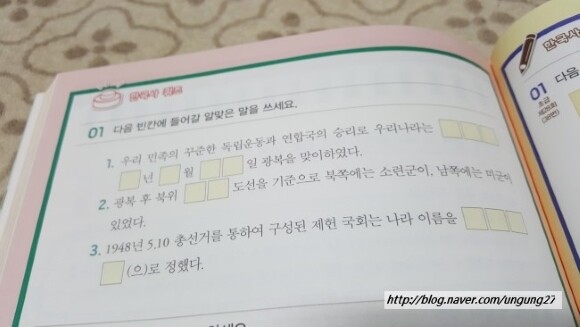 한국사 퀴즈
01 다음 빈칸에 들어갈 알맞은 말을 쓰세요.
1. 우리 민족의 꾸준한 독립운동과 연합국의 승리로 우리나라는
년 월 일 광복을 맞이하였다.
2. 광복 후 북위 도선을 기준으로 북쪽에는 소련군이, 남쪽에는 미군이
있었다.
3. 1948년 5.10 총선거를 통하여 구성된 제헌 국회는 나라 이름을
(으)로 정했다.
한국사
01 다음
초급
http://blog.naver.com/ungung27